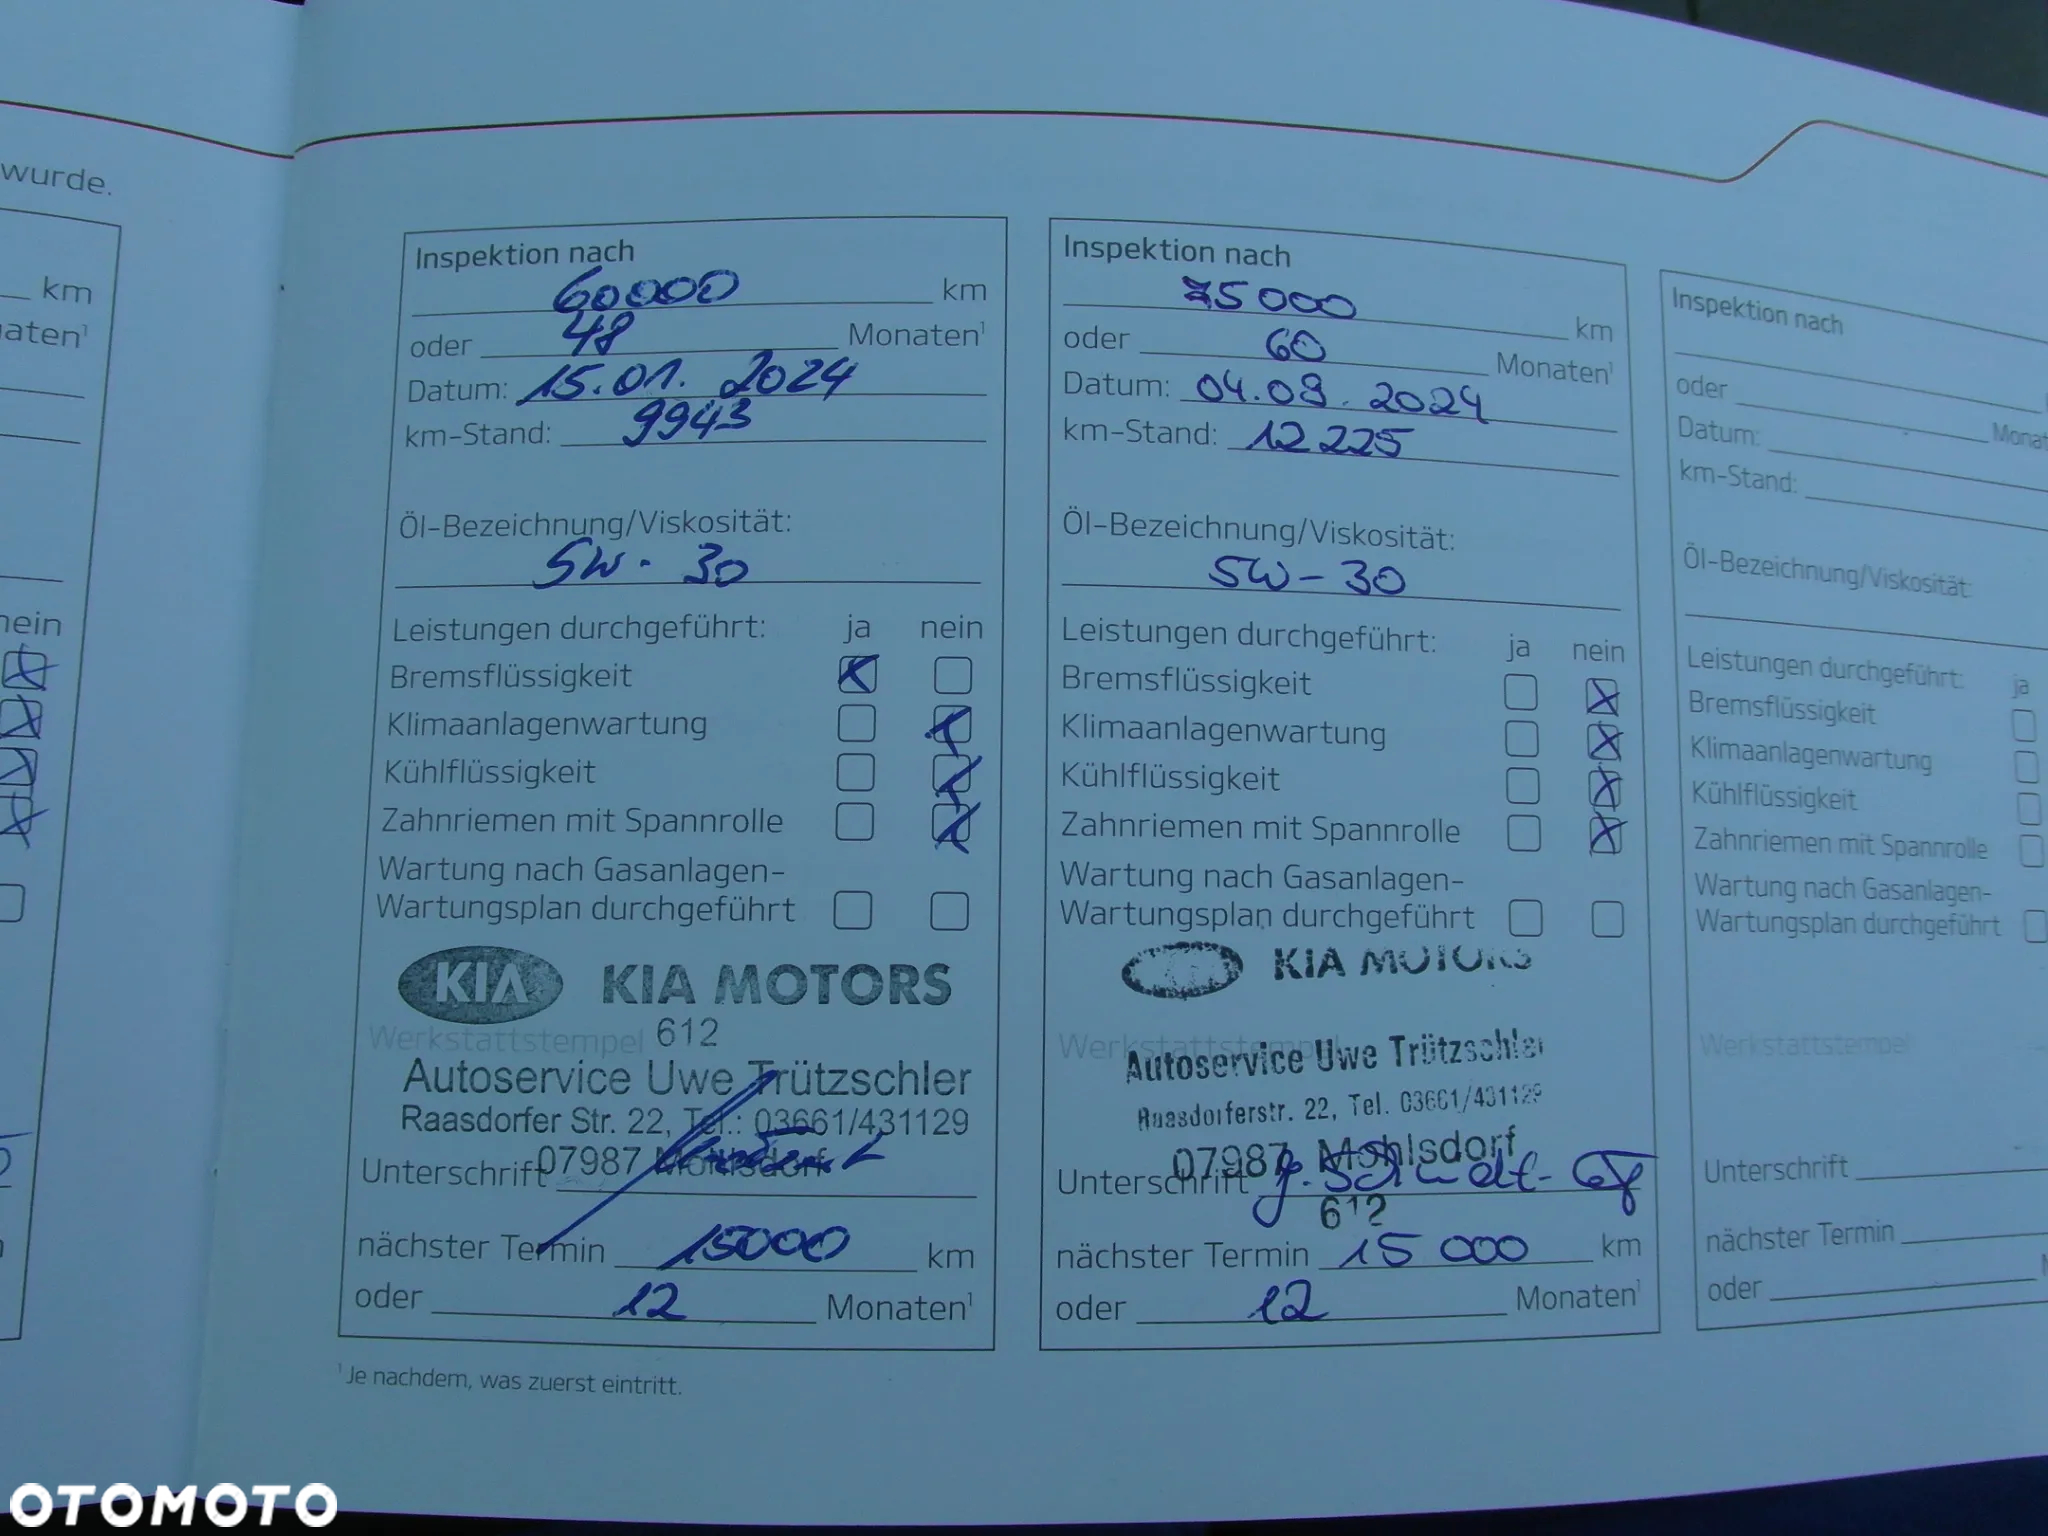 wurde.
km
naten¹
nein
Inspektion nach
60000 km
oder 48 Monaten¹
Datum: 15.01.2024
km-Stand: 9943
Öl-Bezeichnung/Viskosität:
5W-30
Leistungen durchgeführt: ja nein
Bremsflüssigkeit
Klimaanlagenwartung
Kühlflüssigkeit
Zahnriemen mit Spannrolle
Wartung nach Gasanlagen-
Wartungsplan durchgeführt
KIA KIA MOTORS
Werkstattstempel 612
Autoservice Uwe Trützschler
Raasdorfer Str. 22, Tel.: 03661/431129
07987 Mohlsdorf
Unterschrift
nächster Termin 15000 km
oder 12 Monaten¹
¹ Je nachdem, was zuerst eintritt.
Inspektion nach
75000 km
oder 60 Monaten¹
Datum: 04.09.2024
km-Stand: 12225
Öl-Bezeichnung/Viskosität:
5W-30
Leistungen durchgeführt: ja nein
Bremsflüssigkeit
Klimaanlagenwartung
Kühlflüssigkeit
Zahnriemen mit Spannrolle
Wartung nach Gasanlagen-
Wartungsplan durchgeführt
KIA MOTORS
Werkstattstempel
Autoservice Uwe Trützschler
Raasdorferstr. 22, Tel. 03661/431129
07987 Mohlsdorf
Unterschrift
612
nächster Termin 15 000 km
oder 12 Monaten¹
Inspektion nach
oder Monat
Datum:
km-Stand:
Öl-Bezeichnung/Viskosität:
Leistungen durchgeführt: ja
Bremsflüssigkeit
Klimaanlagenwartung
Kühlflüssigkeit
Zahnriemen mit Spannrolle
Wartung nach Gasanlagen-
Wartungsplan durchgeführt
Werkstattstempel
Unterschrift
nächster Termin
oder
OTOMOTO